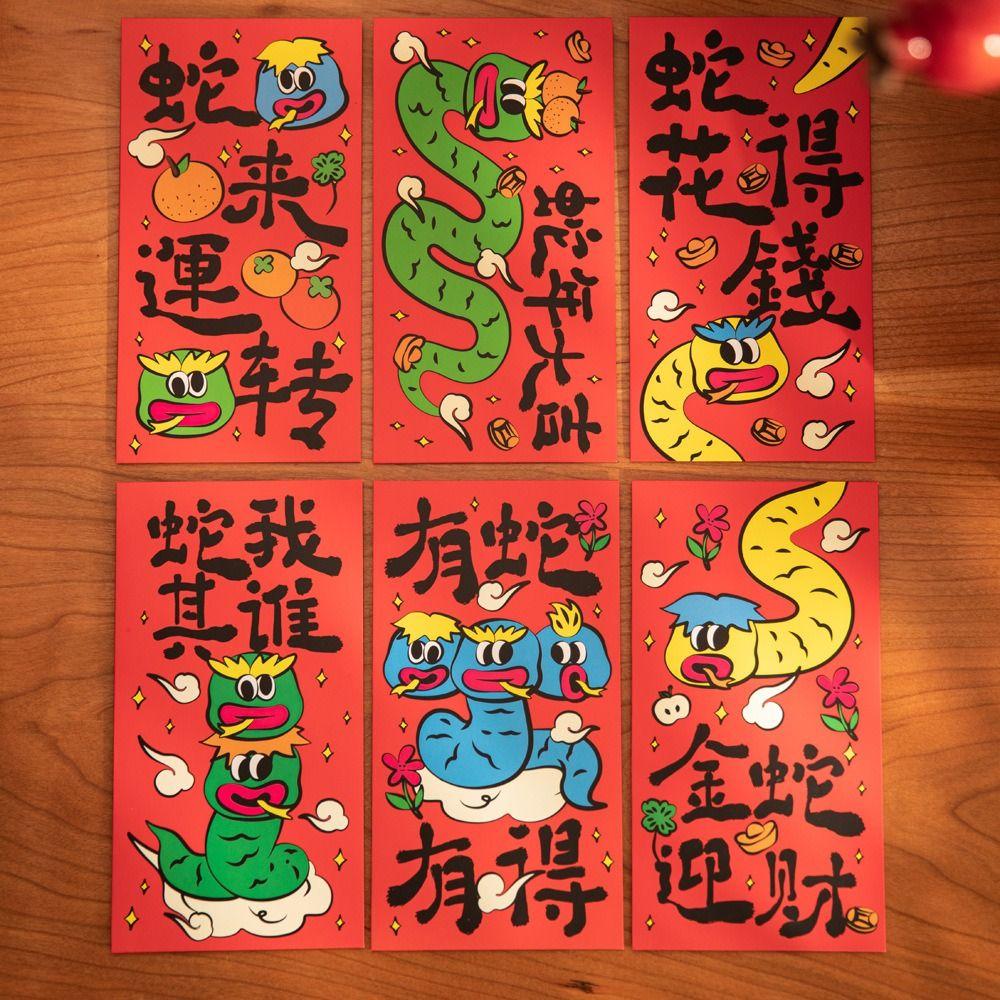 蛇
来
運
转
蛇年大吉
蛇得
花錢
蛇我
其谁
有蛇
有得
金蛇
迎财